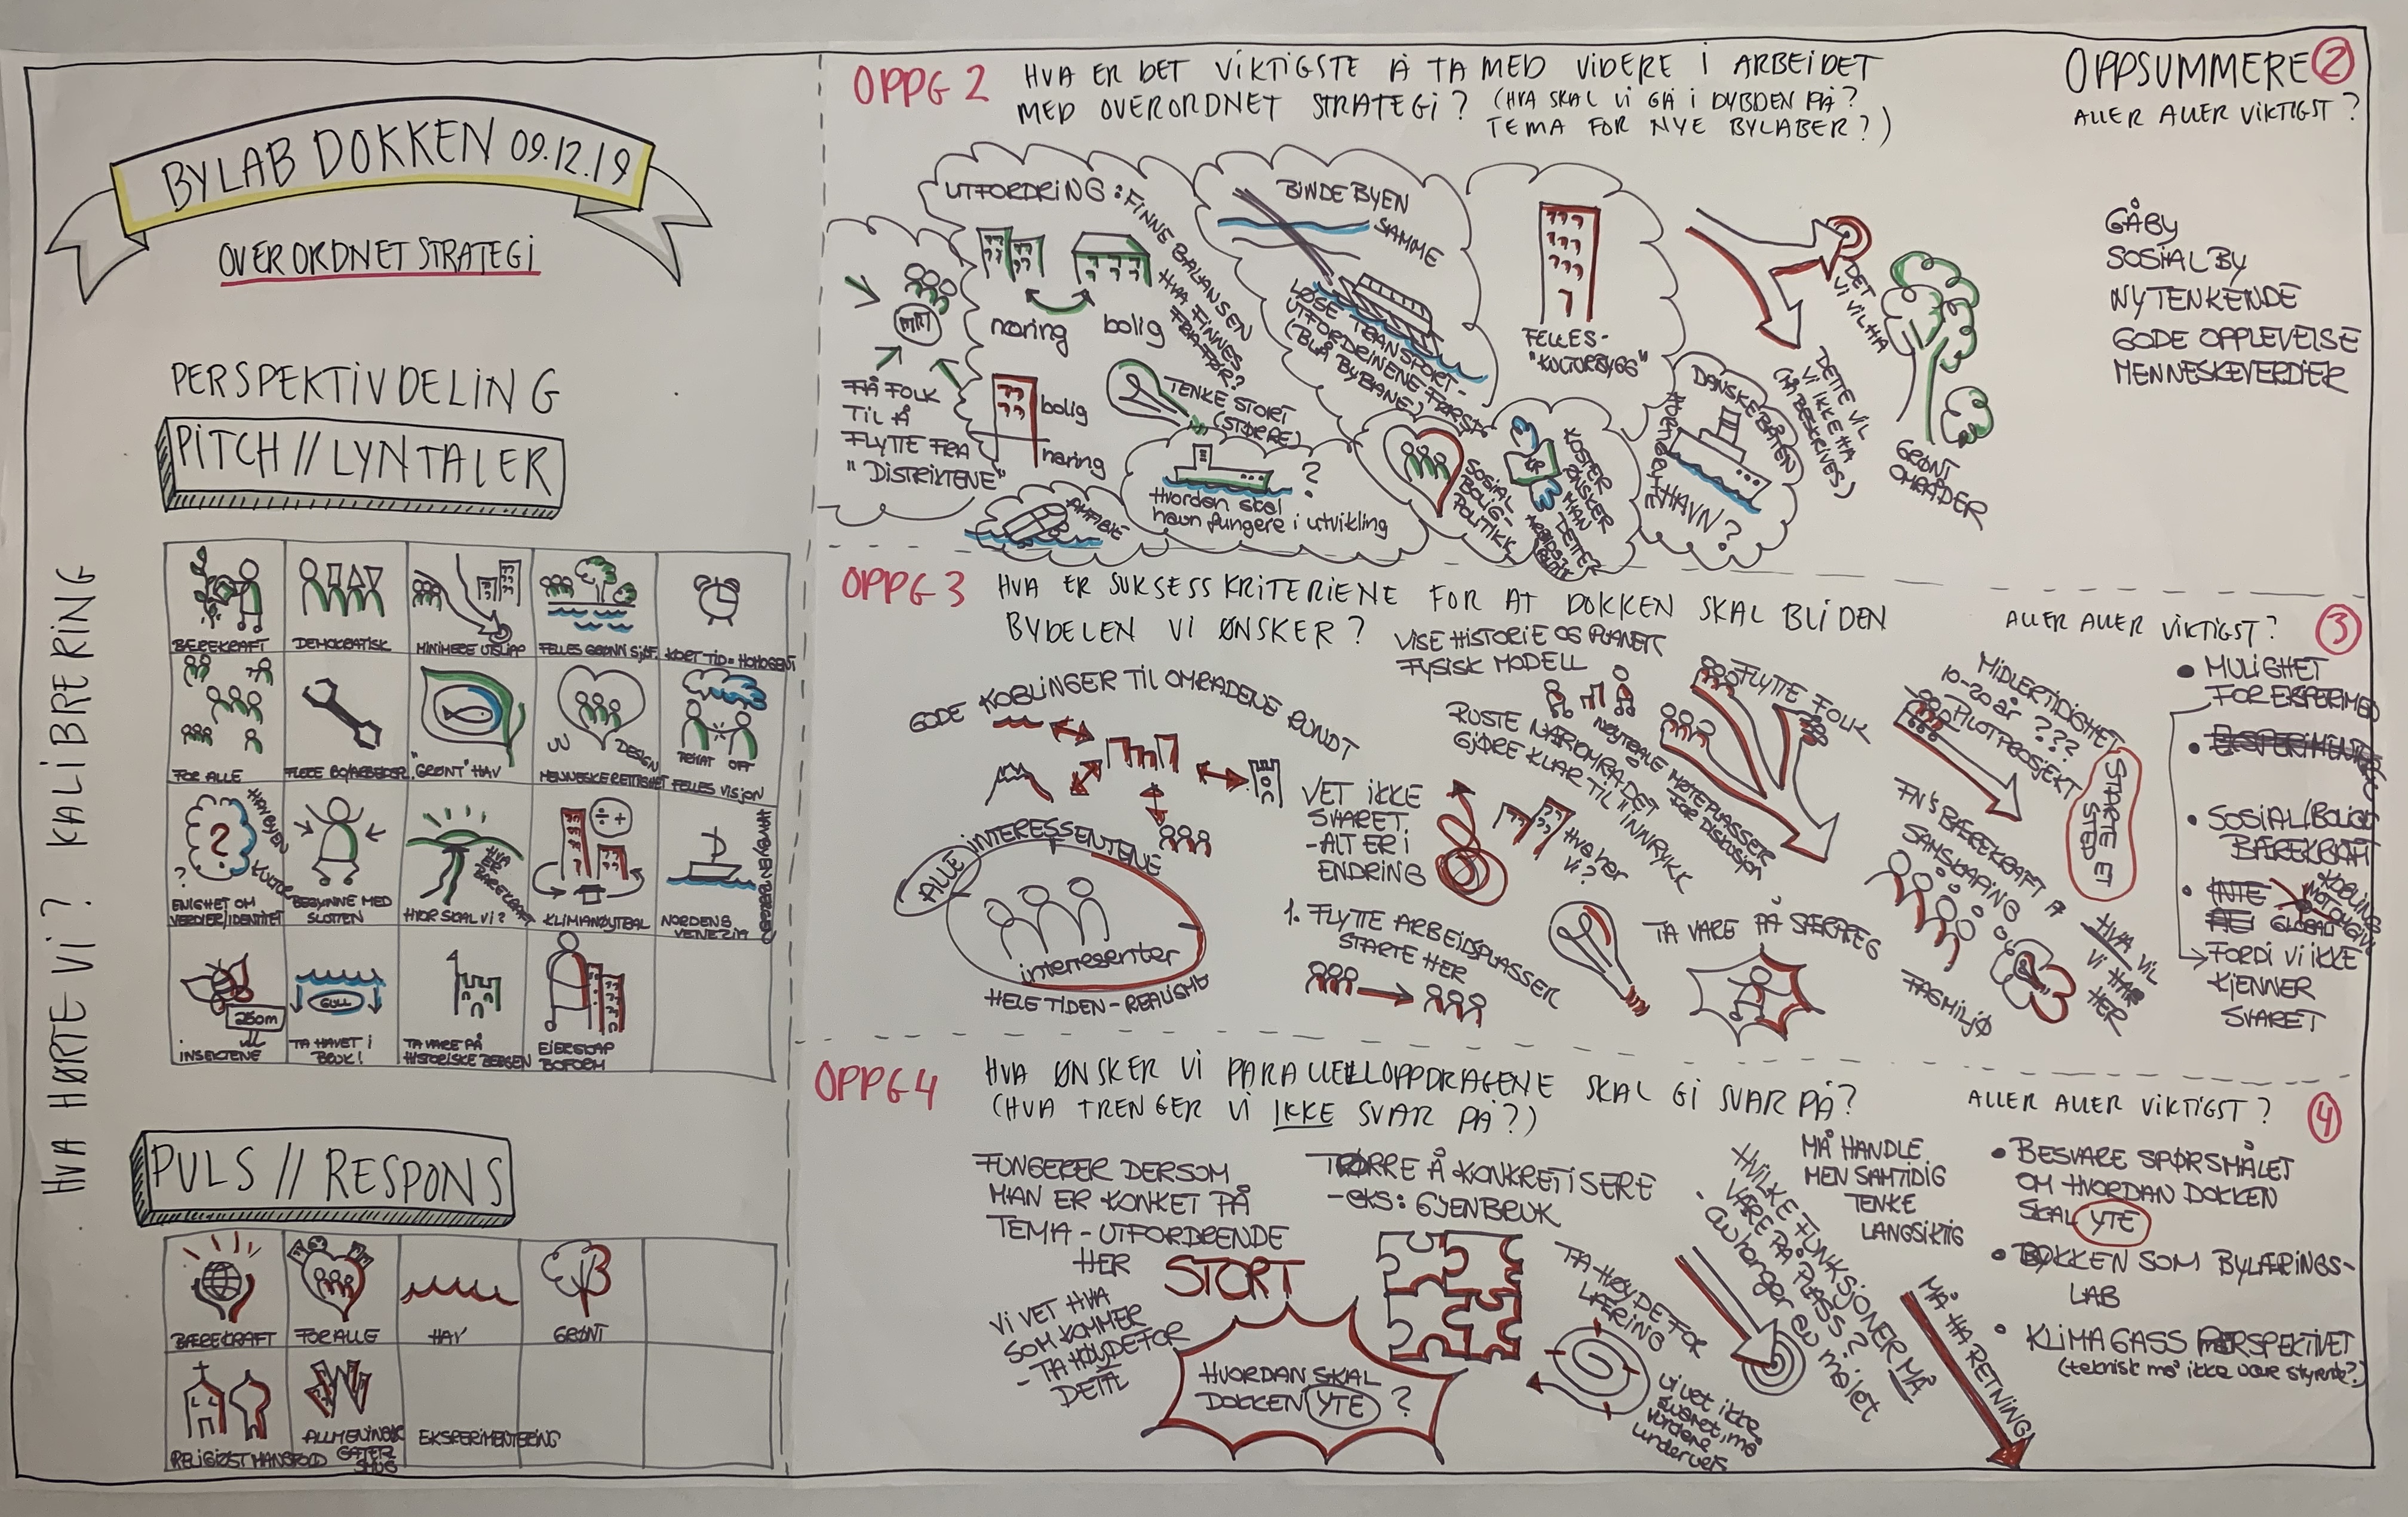 BYLAB DOKKEN 09.12.19
OVERORDNET STRATEGI
PERSPEKTIVDELING
PITCH // LYNTALER
HVA HØRTE VI? KALIBRERING
BÆREKRAFT
DEMOKRATISK
MINIMERE UTSLIPP
FELLES GRØNN SJØF.
KORT TID = HOMOGENT
FOR ALLE
"GRØNT" HAV
DESIGN
MENNESKERETTIGHET
PRIVAT OFF
FELLES VISJON
?
HAVBYEN
KULTUR
?
ENIGHET OM
VERDIER/IDENTITET
BEGYNNE MED
SLUTTEN
HVA
ER
BÆREKRAFT
HVOR SKAL VI?
÷ +
KLIMANØYTRAL
HAVBYEN BERGEN
NORDENS
VENEZIA
250m
INSEKTENE
GULL
TA HAVET I
BRUK!
TA VARE PÅ
HISTORISKE BERGEN
EIERSKAP
BOFORM
PULS // RESPONS
BÆREKRAFT
FOR ALLE
HAV
GRØNT
RELIGIØST MANGFOLD
ALLMENNINGER
GATER
SMUG
EKSPERIMENTERING
OPPG 2
HVA ER DET VIKTIGSTE Å TA MED VIDERE I ARBEIDET
MED OVERORDNET STRATEGI? (HVA SKAL VI GÅ I DYBDEN PÅ?
TEMA FOR NYE BYLABER?)
UTFORDRING: FINNE BALANSEN
HVA FINNES
FRA FØR?
næring
bolig
bolig
næring
MITT
FÅ FOLK
TIL Å
FLYTTE FRA
"DISTRIKTENE"
TENKE STORT
(STØRRE)
BINDE BYEN
SAMME
LØSE TRANSPORT-
UTFORDRINENE FØRST
(BLÅ BYBANE)
FELLES-
"KULTURBYGG"
DET
VI VIL HA
DETTE VIL
VI IKKE HA
(MÅ BESKRIVES)
GRØNT
OMRÅDER
DANSKEBÅTEN
HAVN?
?
Hvordan skal
havn fungere i utvikling
SOSIAL
BOLIG-
POLITIKK
KR
KOSTER
ØNSKER
MAN
DETTE?
OPPSUMMERE 2
ALLER ALLER VIKTIGST?
GÅBY
SOSIAL BY
NYTENKENDE
GODE OPPLEVELSE
MENNESKEVERDIER
OPPG 3
HVA ER SUKSESS KRITERIENE FOR AT DOKKEN SKAL BLI DEN
BYDELEN VI ØNSKER?
GODE KOBLINGER TIL OMRÅDENE RUNDT
ALLE INTERESSENTENE
interessenter
HELE TIDEN - REALISME
VISE HISTORIE OG PLANER
FYSISK MODELL
NØYTRALE MØTEPLASSER
FOR DISKUSJON
RUSTE NÆROMRÅDET
GJØRE KLAR TIL INNRYKK
VET IKKE
SVARET
- ALT ER I
ENDRING
Hva har
vi?
1. FLYTTE ARBEIDSPLASSER
STARTE HER
FLYTTE FOLK
MIDLERTIDIGHET
10-20 år ???
PILOTPROSJEKT
STARTE ET
STED
FN'S BÆREKRAFT
SAMSKAPING
TA VARE PÅ SÆRPREG
FAGMILJØ
HVA VIL
VI HA
HER
ALLER ALLER VIKTIGST? 3
• MULIGHET
FOR EKSPERIMED
• SOSIAL/BOLIG
BÆREKRAFT
• KOBLING
MOT OMGIV
GLOBAL
FORDI VI IKKE
KJENNER
SVARET
OPPG 4
HVA ØNSKER VI PARALLELLOPPDRAGENE SKAL GI SVAR PÅ?
(HVA TRENGER VI IKKE SVAR PÅ?)
FUNGERER DERSOM
MAN ER KONKET PÅ
TEMA - UTFORDRENDE
HER
TØRRE Å KONKRETISERE
- EKS: GJENBRUK
START
VI VET HVA
SOM KOMMER
- TA HØYDE FOR
DETTE
HVORDAN SKAL
DOKKEN YTE?
TA HØYDE FOR
LÆRING
Vi vet ikke
svaret, må
vurdere
underveis
HVILKE FUNKSJONER MÅ
VÆRE PÅ PLASS?
• avhenger av målet
MÅ HANDLE
MEN SAMTIDIG
TENKE
LANGSIKTIG
MÅ HA RETNING!
ALLER ALLER VIKTIGST? 4
• BESVARE SPØRSMÅLET
OM HVORDAN DOKKEN
SKAL YTE
• DOKKEN SOM BYLÆRINGS-
LAB
• KLIMAGASS PERSPEKTIVET
(teknisk må ikke være styrende?)